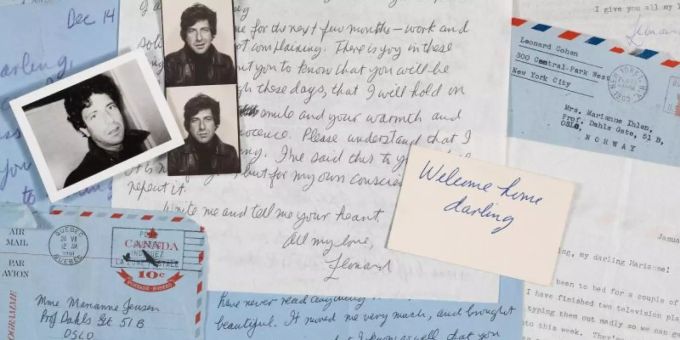 Dec 14
arling,
you
to
for the next few months – work and
not complaining. There is joy in these
you to know that you will be
these days, that I will hold on
smile and your warmth and
Please understand that I
I've said this to
but for my own
repeat it.
Write me and tell me your heart
All my love,
Leonard
I give you all my
Leonard Cohen
300 Central Park West
New York City
Mrs. Marianne Ihlen,
Prof. Dahls Gate, 51 B,
OSLO,
NORWAY
Welcome home
darling
AIR
MAIL
PAR
AVION
QUEBEC
QUEBEC
CANADA
10c
Mme Marianne Jensen
Prof Dahls Gt 51 B
OSLO
have never read anything
beautiful. It moved me very much, and brought
that you
Janua
ng, my darling Marianne!
been to bed for a couple of
I have finished two television pla
typing them out madly so we can g
to this week. They're